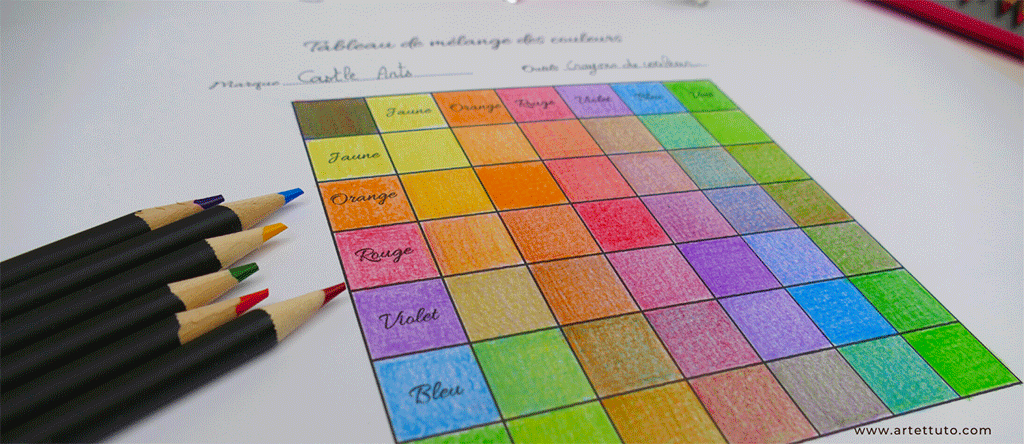 Tableau de mélange des couleurs
Marque Castle Arts Outils Crayons de couleur
Jaune Orange Rouge Violet Bleu Vert
Jaune
Orange
Rouge
Violet
Bleu
www.artettuto.com